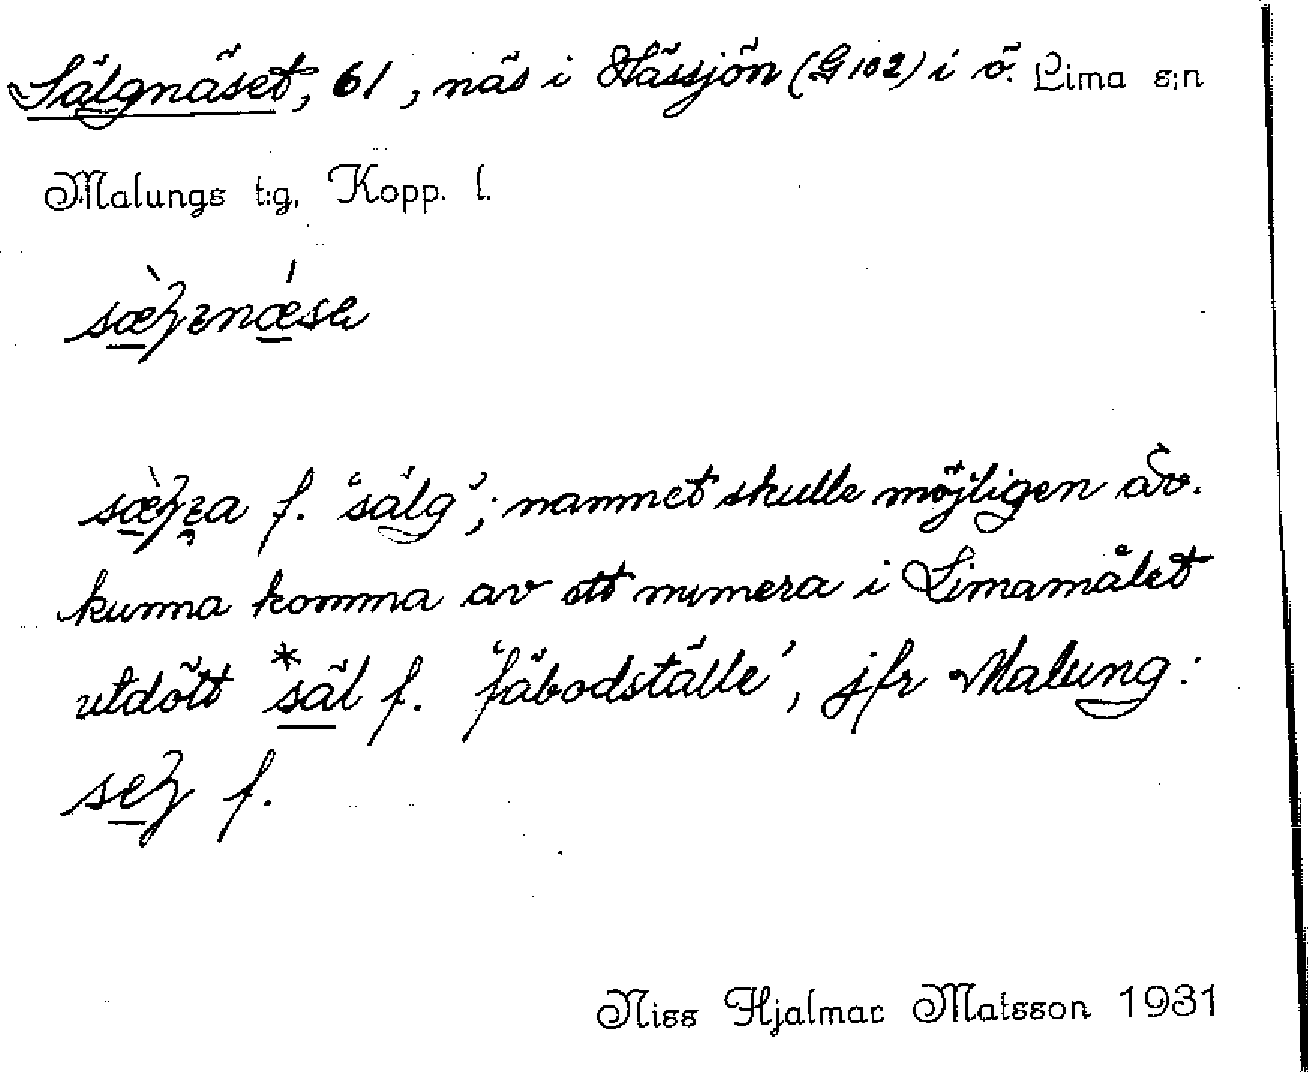 Sälgnäset, 61, näs i Hässjön (G 102) i ö. Lima s:n
Malungs t:g, Kopp. l.
f. 'sälg'; namnet skulle möjligen äv.
kunna komma av ett numera i Limamålet
utdött *säl f. 'fäbodställe', jfr Malung:
f.
Niss Hjalmar Matsson 1931